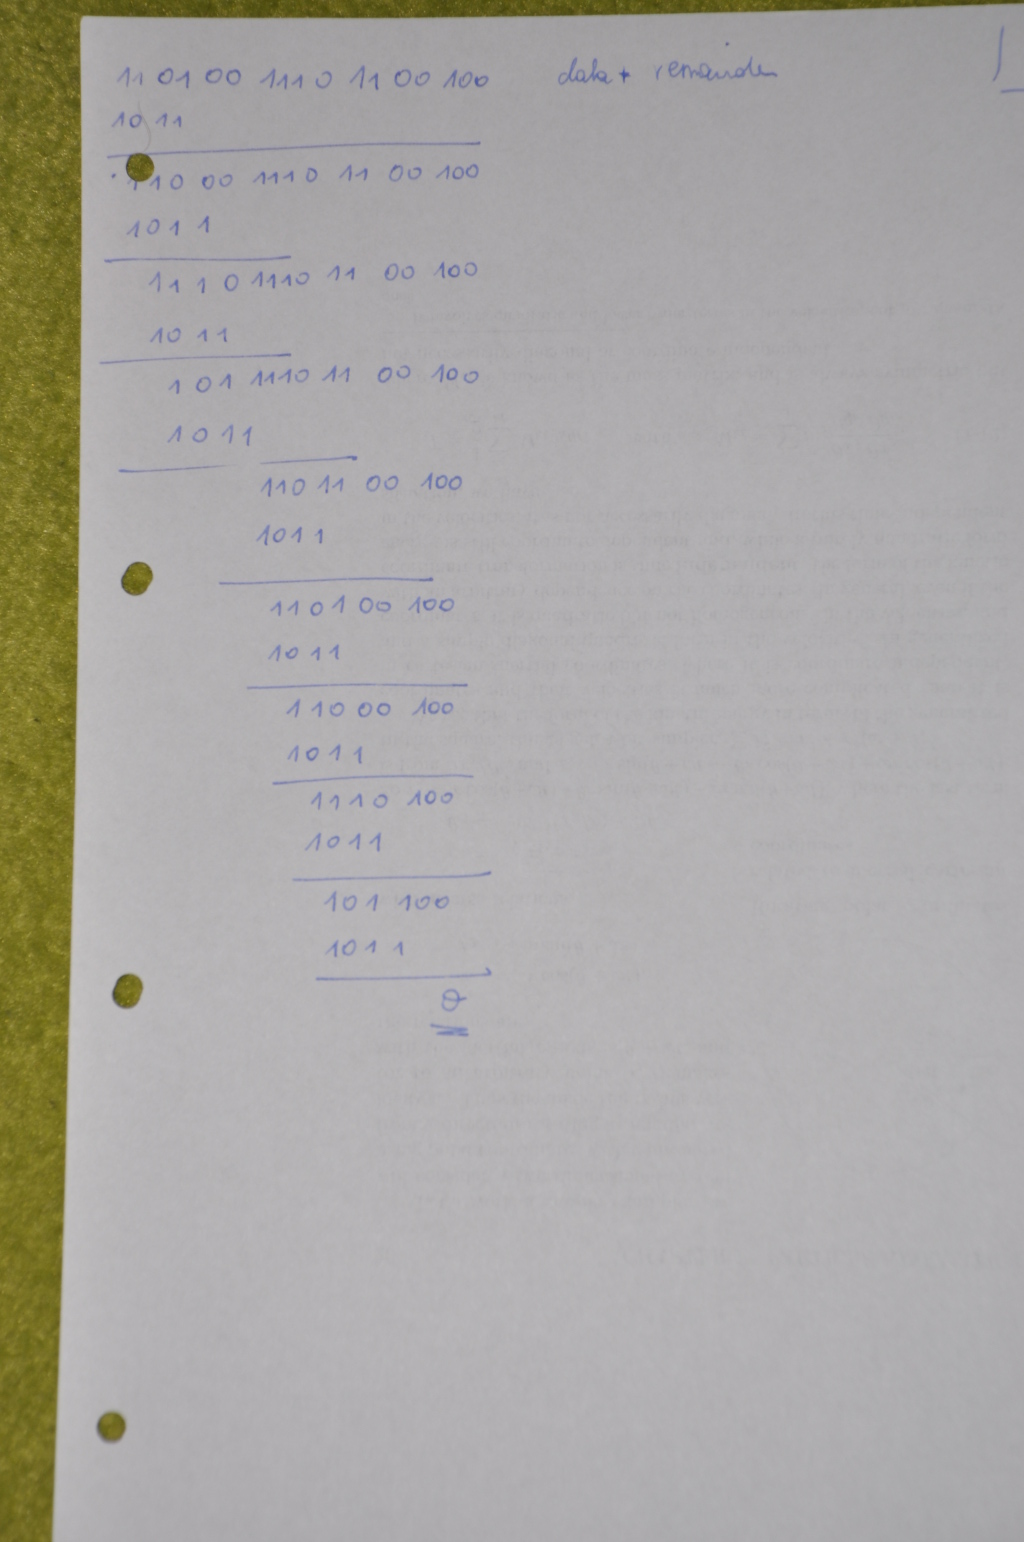 11 01 00 111 0 11 00 100 data + remainder
10 11
110 00 1110 11 00 100
101 1
111 0 1110 11 00 100
10 11
101 1110 11 00 100
1011
110 11 00 100
1011
110100 100
1011
11000 100
1011
1110 100
1011
101 100
101 1
0